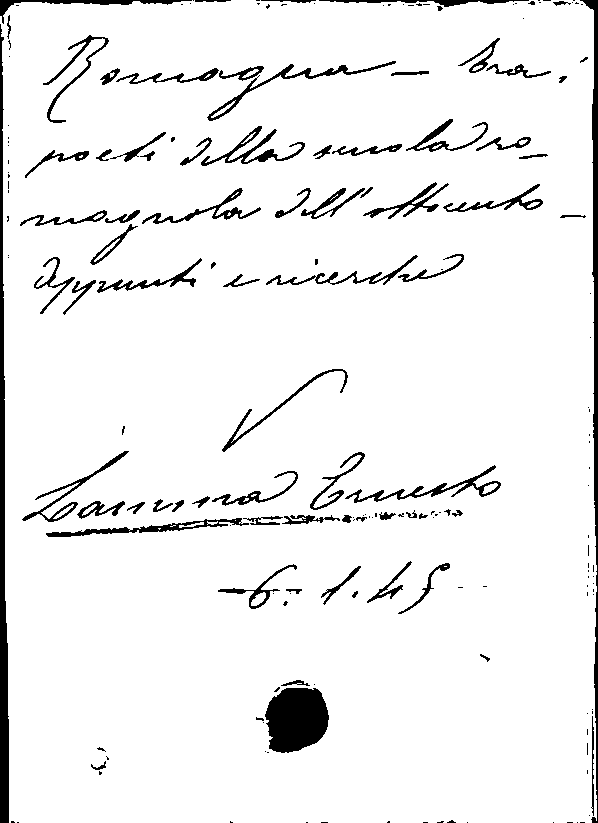 Romagna - Tra i
poeti della scuola ro-
magnola dell'ottocento -
Appunti e ricerche
V
Lamma Ernesto
6. 1. 45